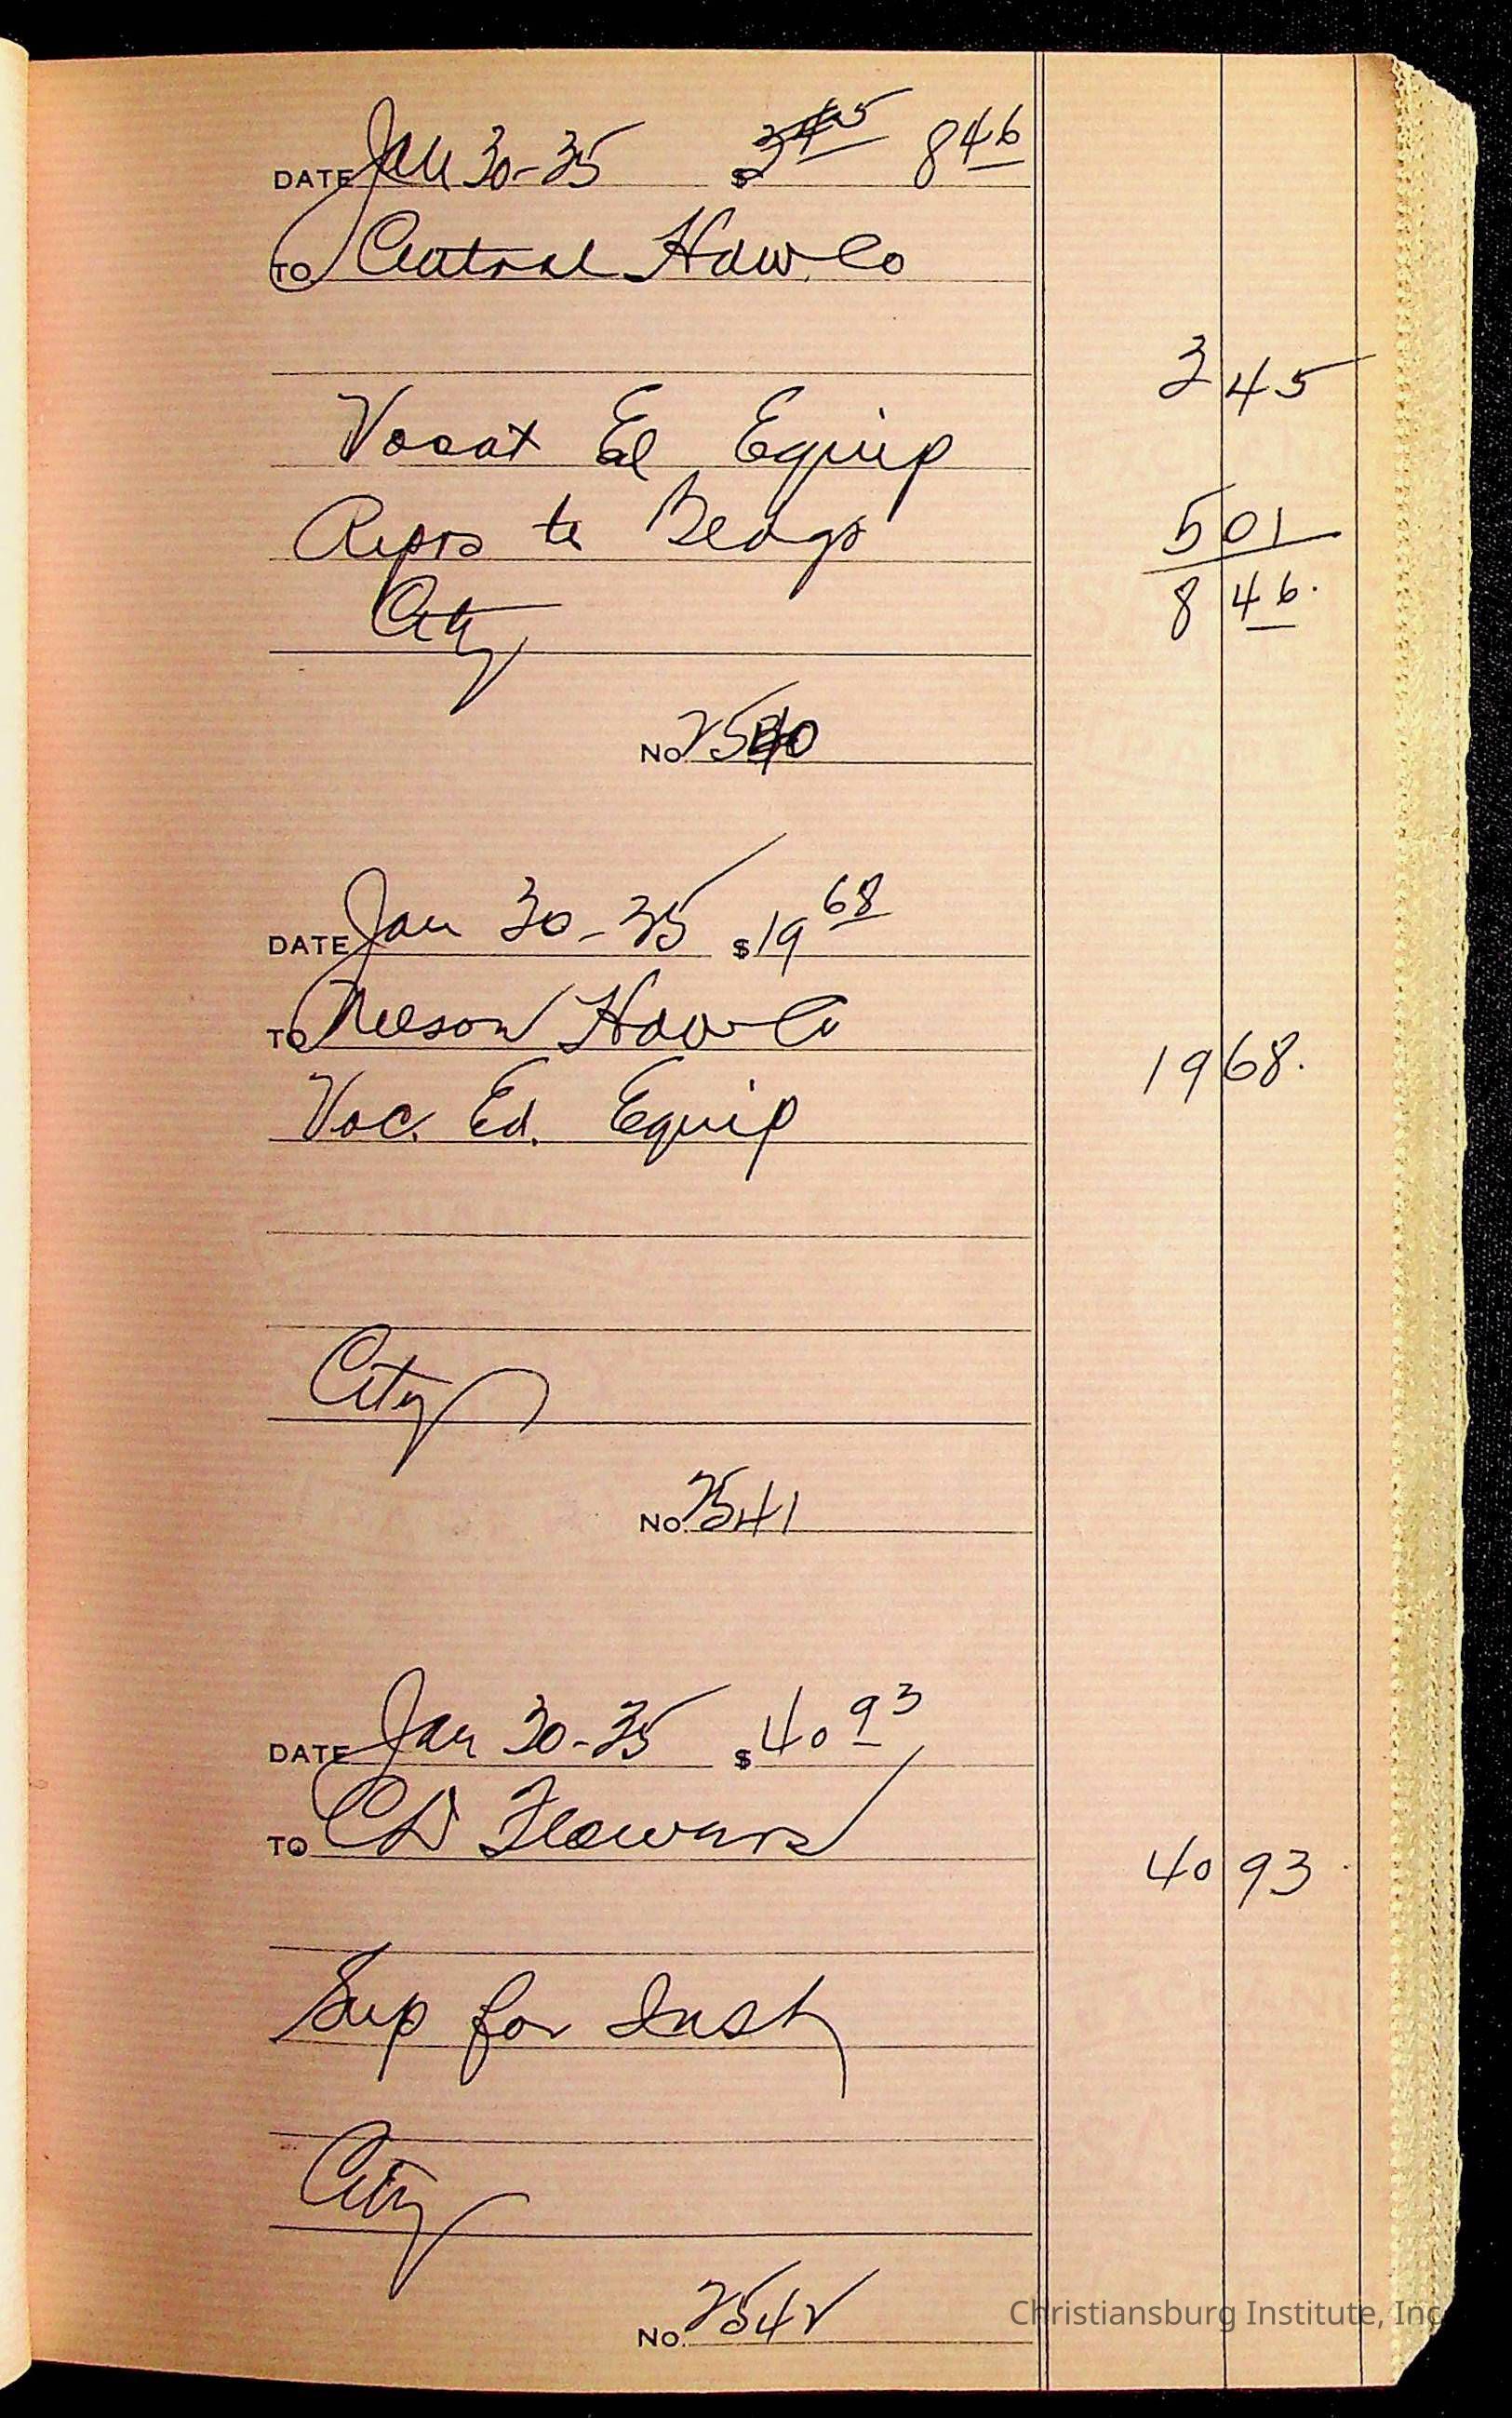 DATE Jan 30-35 $ 3 45 8 46
TO Central Hdw. Co
3 45
Vocat Ed Equip
Reprs to Bldgs 5 01
City 8 46.
No 2540
DATE Jan 30-35 $ 19 68
TO Nelson Hdw Co
19 68.
Voc. Ed. Equip
City
No. 2541
DATE Jan 30-35 $ 40 93
TO CD Flowers
40 93
Sup for Inst
City
No. 2542
Christiansburg Institute, Inc